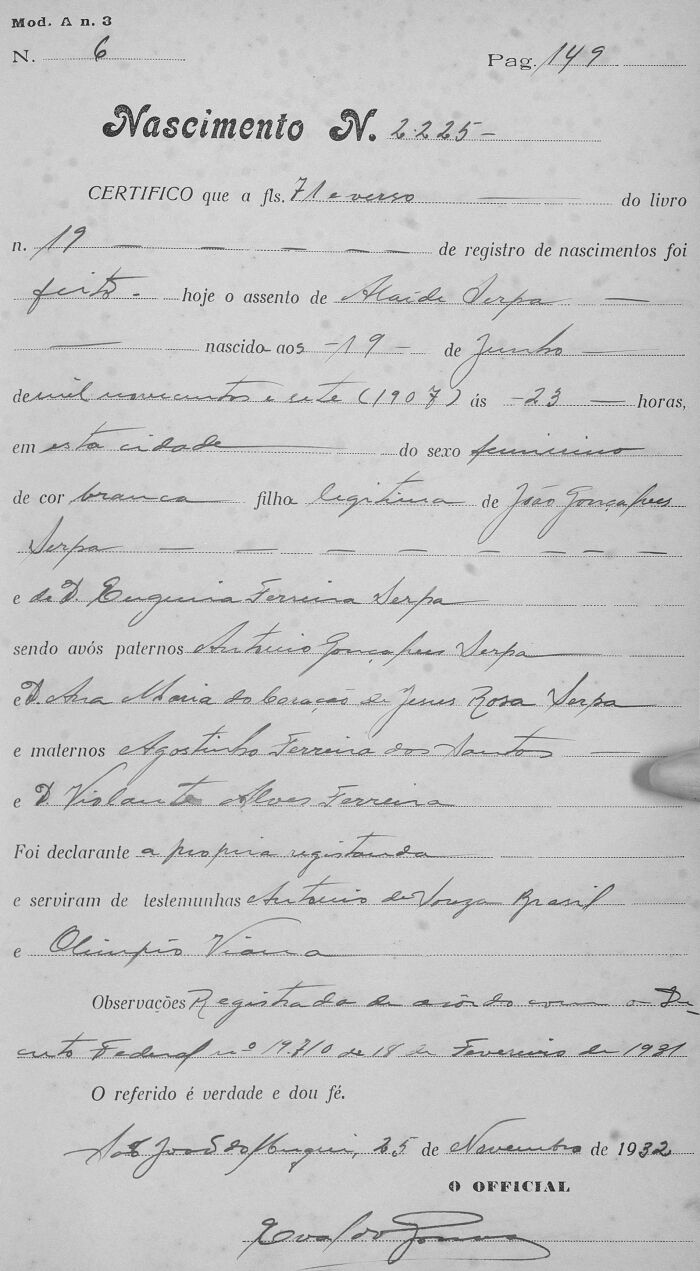 Mod. A n. 3
N. 6 Pag. 149
Nascimento N. 2.225 -
CERTIFICO que a fls. 71 e verso do livro
n. 19 — — — — — de registro de nascimentos foi
feito - hoje o assento de Alaíde Serpa —
— nascido aos - 19 - de Junho —
de mil novecentos e sete (1907) ás - 23 — horas,
em esta cidade do sexo feminino
de cor branca filha legitima de João Gonçalves
Serpa — — — — — — — —
e de D. Eugenia Ferreira Serpa
sendo avós paternos Antonio Gonçalves Serpa
e D. Ana Maria do Coração de Jesus Rosa Serpa
e maternos Agostinho Ferreira dos Santos —
e D. Violante Alves Ferreira
Foi declarante a propria registanda
e serviram de testemunhas Antonio de Souza Brasil
e Olimpio Viana
Observações Registrada de acôrdo com o De-
creto Federal nº 19.710 de 18 de Fevereiro de 1931
O referido é verdade e dou fé.
São João do Muqui, 25 de Novembro de 1932
O OFFICIAL